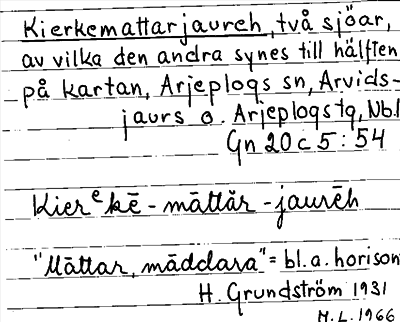 Kierkemattarjaureh, två sjöar,
av vilka den andra synes till hälften
på kartan, Arjeplogs sn, Arvids-
jaurs o. Arjeplogs tg, Nbl
Gn 20 c 5 : 54
Kierᵉkē - māttăr - jaurēh
"Māttar, māddara" = bl.a. horison
H. Grundström 1931
M.L. 1966